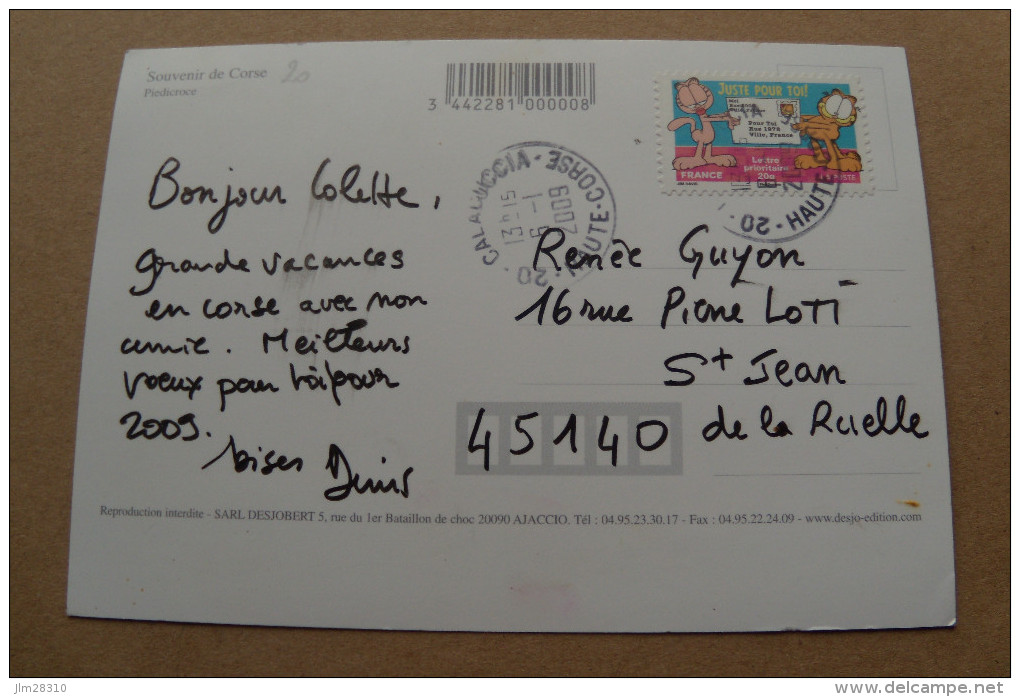 Souvenir de Corse
20
Piedicroce
3 442281 000008
JUSTE POUR TOI!
Pour Toi
Rue 1978
Ville, France
Lettre
prioritaire
20g
FRANCE
LA POSTE
JIM DAVIS
CALACUCCIA
13h15
6-1
2009
20 - HAUTE-CORSE
20 - HAUTE
Bonjour Colette,
grande vacances
en corse avec mon
amie. Meilleurs
voeux pour toi pour
2009.
bises Denis
Renée Guyon
16 rue Pierre LOTi
St Jean
de la Ruelle
45140
Reproduction interdite - SARL DESJOBERT 5, rue du 1er Bataillon de choc 20090 AJACCIO. Tél : 04.95.23.30.17 - Fax : 04.95.22.24.09 - www.desjo-edition.com
jlm28310
www.delcampe.net